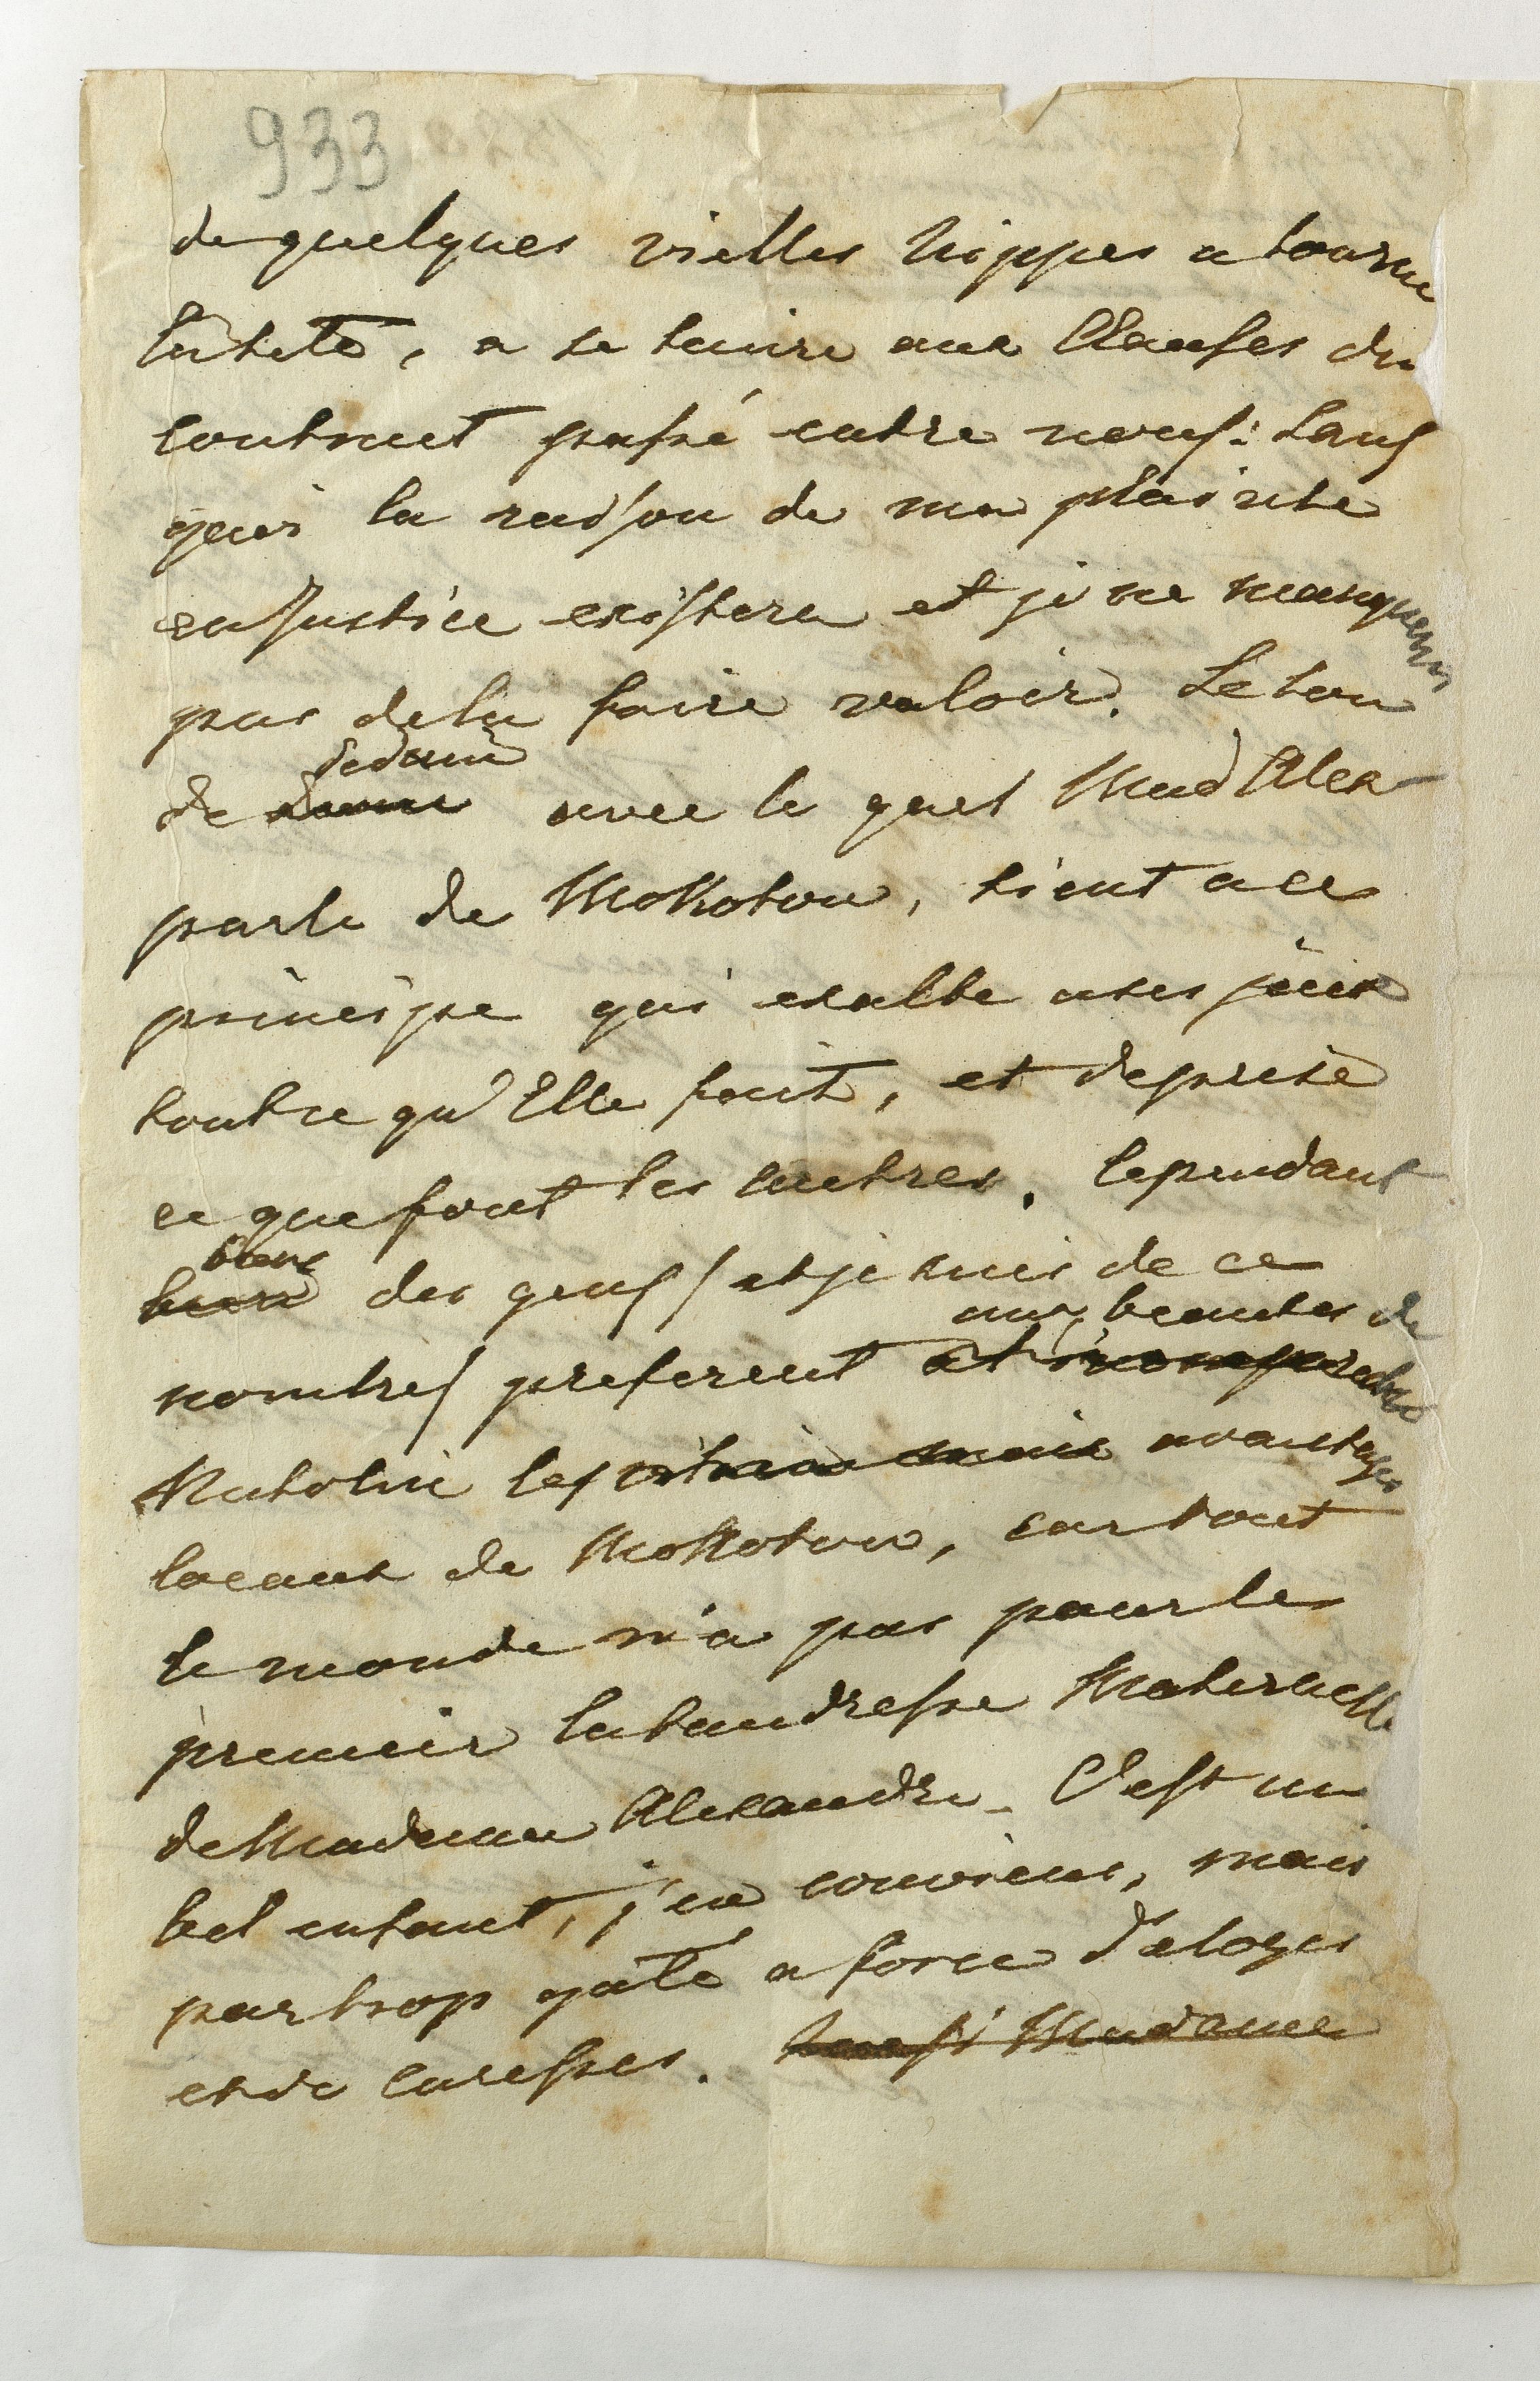 933
de quelques vielles nippes a tourne
la tete, a se tenire aux Clauses du
contract passé entre nous: Sans
quoi la raison de ma plainte
en Justice existera et je ne manquerais
pas de la faire valoir. Le ton
dedain
de avec le quel Mad Alex
parle de Mokotow, tient a ce
principe qui exalte a ses jeux
tout ce qu'Elle fait, et deprise
ce que font les autres. Cependant
bien
des gens / et je suis de ce
aux beautes de
nombre / preferent
Natolin les avantages
locaux de Mokotow, car tout
le monde n'a pas pour les
premier la tandresse Maternelle
de Madame Alexandre. C'est un
bel enfant, j'en conviens, mais
par trop gâté a force d'eloges
et de caresses. Madame